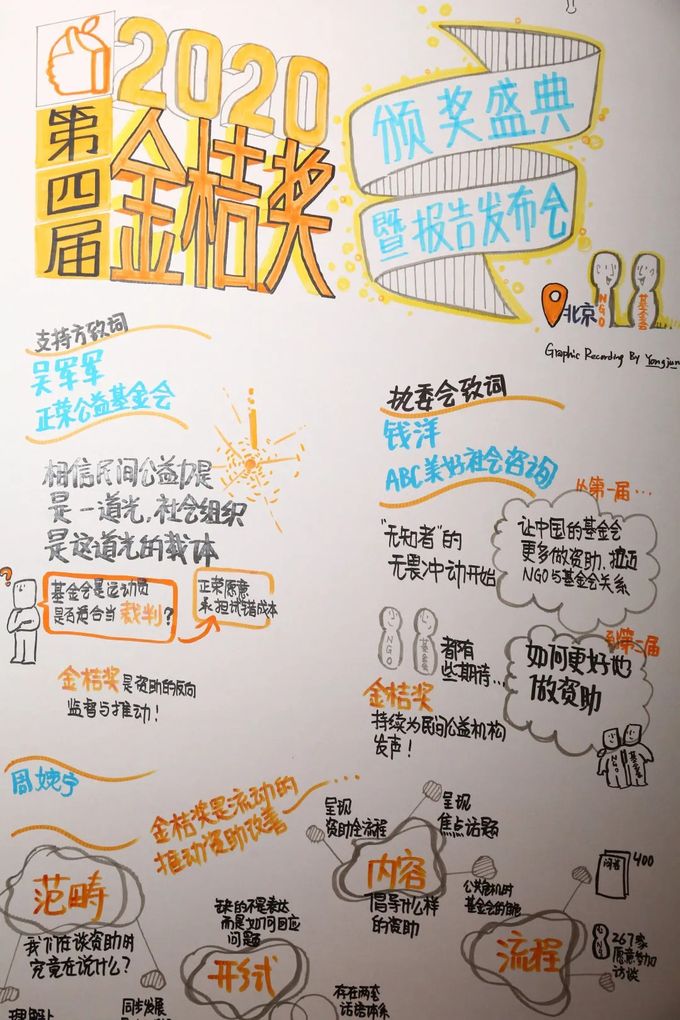 2020
第四届
金桔奖
颁奖盛典
暨报告发布会
北京
NGO
基金会
Graphic Recording By Yongjun
支持方致词
吴军军
正荣公益基金会
相信民间公益力是
是一道光,社会组织
是这道光的载体
基金会是运动员
是否适合当裁判?
正荣愿意
承担试错成本
金桔奖是资助的反向
监督与推动!
执委会致词
钱洋
ABC美好社会咨询
从第一届…
“无知者”的
无畏冲动开始
让中国的基金会
更多做资助、拉近
NGO与基金会关系
NGO
基金会
都有
些期待…
金桔奖
持续为民间公益机构
发声!
如何更好地
做资助
NGO
基金会
周婉宁
金桔奖是流动的
推动资助改善
范畴
我们在谈资助时
究竟在说什么?
理解上
同步发展
缺的不是表达
而是如何回应
问题
开拭
存在两套
话语体系
呈现
资助全流程
呈现
焦点话题
内容
倡导什么样
的资助
公共危机时
流程
问卷
400
NGO
267家
愿意参加
访谈